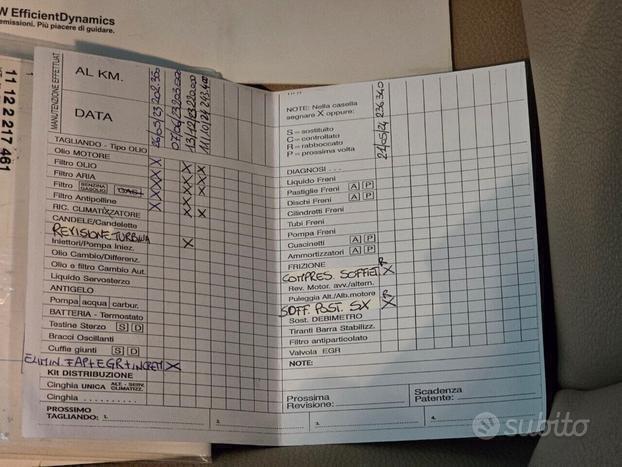 W EfficientDynamics
emissioni. Più piacere di guidare.
11 12 2 217 461
MANUTENZIONE EFFETTUAT.
AL KM.
DATA
26/05/23 202.350
07/06/23 203.000
13/12/23 220.000
11/10/24 243.400
TAGLIANDO - Tipo OLIO
Olio MOTORE X
Filtro OLIO X X X
Filtro ARIA X X X
Filtro BENZINA GASOLIO GAS X X X
Filtro Antipolline X X X
RIC. CLIMATIZZATORE X X
CANDELE/Candelette
REVISIONE TURBINA
Iniettori/Pompa Iniez. X
Olio Cambio/Differenz.
Olio e filtro Cambio Aut.
Liquido Servosterzo
ANTIGELO
Pompa acqua carbur.
BATTERIA - Termostato
Testine Sterzo S D
Bracci Oscillanti
Cuffie giunti S D
ELIMIN. FAP+EGR+ X
Kit DISTRIBUZIONE
Cinghia UNICA ALT. - SERV. CLIMATIZZ.
Cinghia
PROSSIMO
TAGLIANDO: 1. 2.
NOTE: Nella casella
segnare X oppure:
S = sostituito
C = controllato
R = rabboccato
P = prossima volta
21/05/24 236.340
DIAGNOSI
Liquido Freni
Pastiglie Freni A P
Dischi Freni A P
Cilindretti Freni
Tubi Freni
Pompa Freni
Cuscinetti A P
Ammortizzatori A P
FRIZIONE
COMPRES. SOFFIET. R X
Rev. Motor. avv./altern.
Puleggia Alt./Alb.motore R
SOFF. POST. SX X
Sost. DEBIMETRO
Tiranti Barra Stabilizz.
Filtro antiparticolato
Valvola EGR
NOTE:
Prossima
Revisione:
Scadenza
Patente:
3. 4.
subito